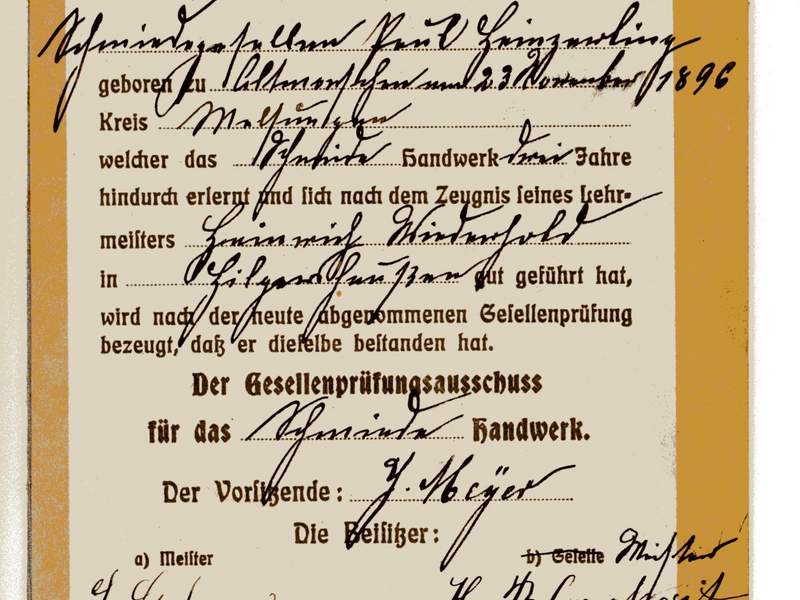 Schmiedegesellen Paul Heinzerling
geboren zu Altmorschen am 23 November 1896
Kreis Melsungen
welcher das Schmiede Handwerk drei Jahre
hindurch erlernt und sich nach dem Zeugnis seines Lehr-
meisters Heinrich Wiederhold
in Hilgershausen gut geführt hat,
wird nach der heute abgenommenen Gesellenprüfung
bezeugt, daß er dieselbe bestanden hat.
Der Gesellenprüfungsausschuss
für das Schmiede Handwerk.
Der Vorsitzende: Meyer
Die Beisitzer:
a) Meister b) Geselle Meister